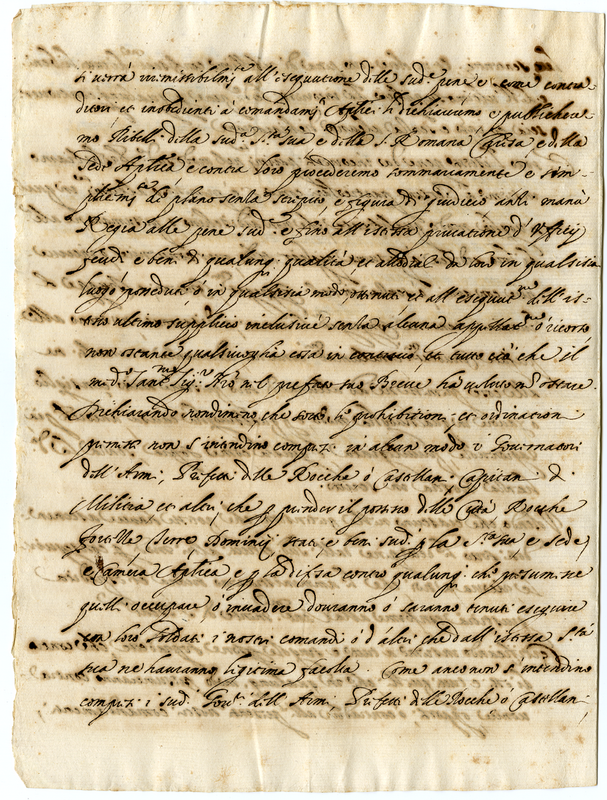 si verrà irremissibilm.te all'esequutione delle sud.e pene e come contra
ditori et inobedienti à comandam.ti Ap.lici li dichiariamo e publichere
mo Ribelli della sud.a S.tà sua e della S. Romana Chiesa e della
Sede Ap.lica e contra loro procederemo sommariamente e sim-
plicem.te de plano senza strepito e figura di giudicio anzi manu
Regia alle pene sud.e e fino all'istessa privatione d'Ufficij
feudi e beni di qualunq. qualità, et allodiali in qualsisia
luogo posseduti, ò in qualsisia modo tenuti et all'esequut.ne dell'is-
tesso ultimo supplicio inclusivè senza alcuna appellat.ne ò ricorso
non ostante qualsivoglia cosa in et tutto ciò che il
m.do Sant.mo Sig.r N'ro nel prefato suo Breve hà voluto non ostare
Dichiarando nondimeno, che sotto le prohibitioni et ordinationi
premesse non s'intendino compresi in alcun modo i Governatori
dell'Armi, Prefetti delle Rocche ò Castellani, Capitani di
Militia et altri, che p prender il possesso delle Città Rocche
fortezze Terre Dominij stati, e beni sud.i p la S.tà sua e sede,
e Camera Ap.lica, e p la difesa contro qualunq. che presumesse
quelli occupare ò invadere dovranno ò saranno tenuti eseguire
con loro soldati i nostri comandi ò d'altri che dall'istessa S.tà
sua ne havranno legitima facoltà. Come anco non s'intendino
compresi i sud.i Gov.ri dell'Armi, Prefetti delle Rocche ò Castellani,